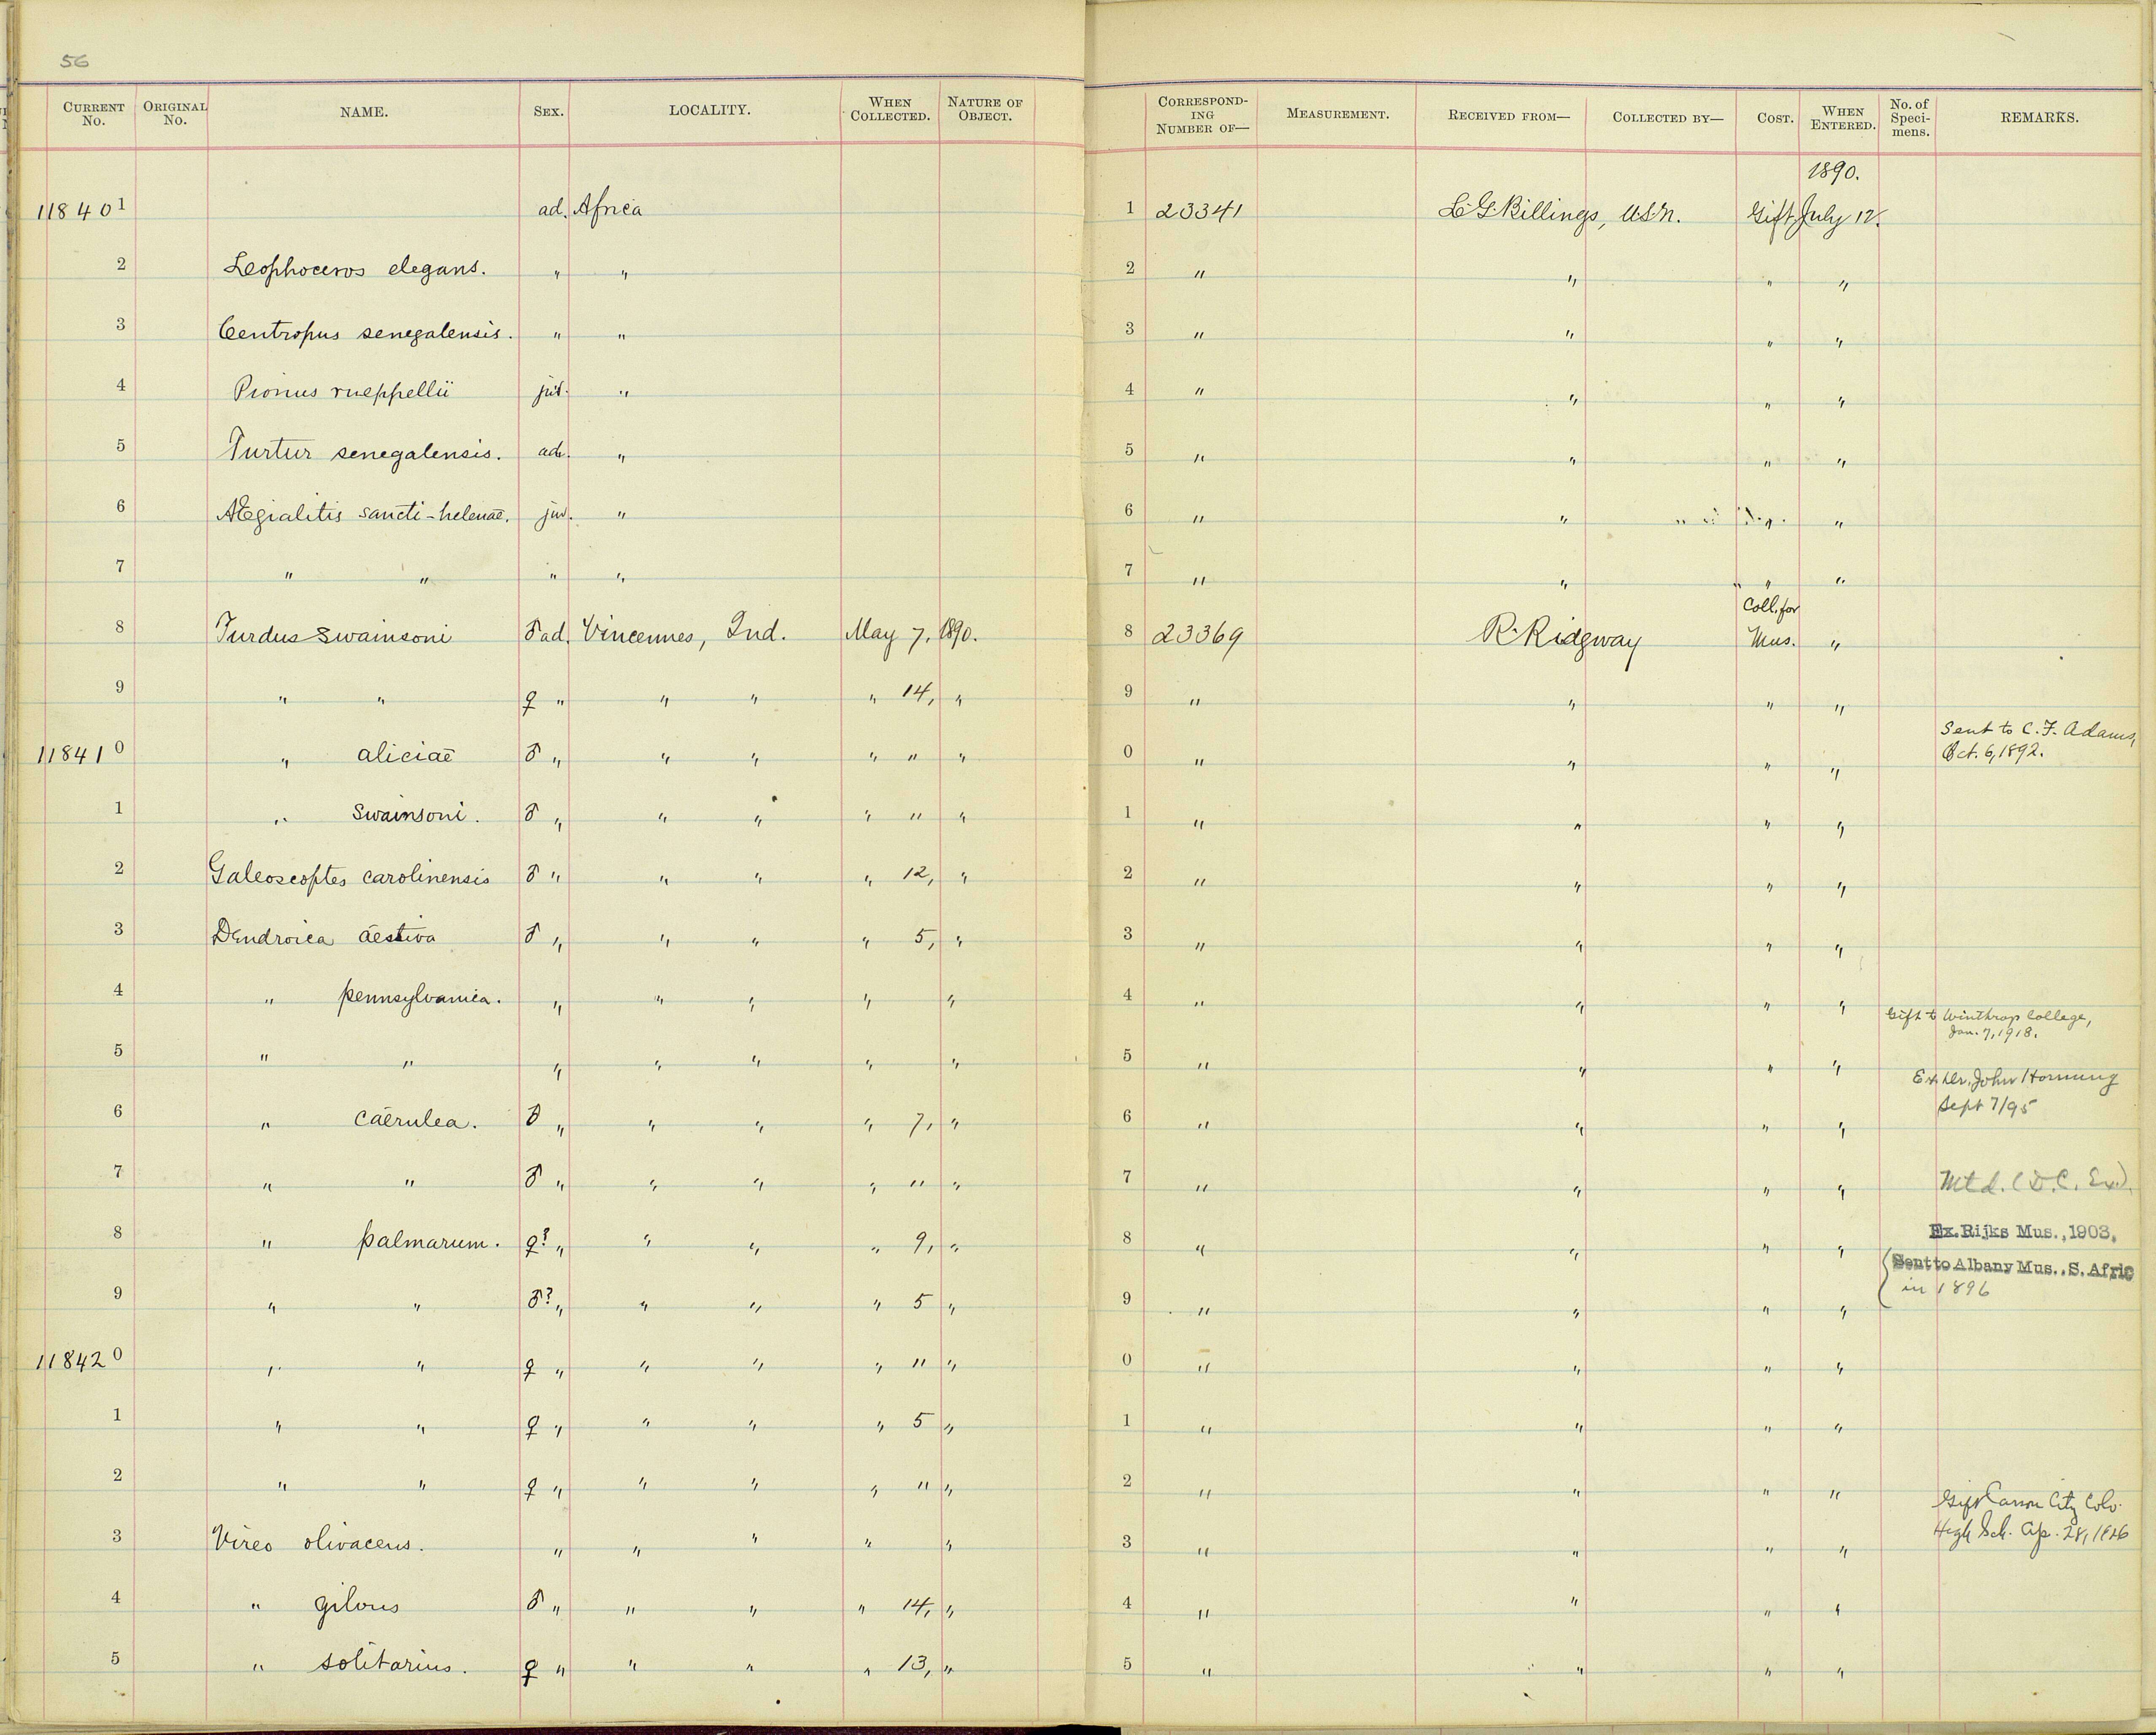 56
CURRENT No. ORIGINAL No. NAME. SEX. LOCALITY. WHEN COLLECTED. NATURE OF OBJECT. CORRESPONDING NUMBER OF— MEASUREMENT. RECEIVED FROM— COLLECTED BY— COST. WHEN ENTERED. No. of Specimens. REMARKS.
1890.
118401 ad. Africa 1 23341 L. G. Billings, U.S.N. Gift July 12.
2 Lophoceros elegans. " " 2 " " " "
3 Centropus senegalensis. " " 3 " " " "
4 Pionus rueppellii juv. " 4 " " " "
5 Turtur senegalensis. ad. " 5 " " " "
6 Ægialitis sancti-helenae. juv. " 6 " " "
7 " " " " 7 " " " "
8 Turdus swainsoni ♂ ad. Vincennes, Ind. May 7, 1890. 8 23369 R. Ridgway Coll. for Mus. "
9 " " ♀ " " " " 14, " 9 " " " "
118410 " aliciae ♂ " " " " " " 0 " " " " Sent to C. F. Adams, Oct. 6, 1892.
1 " swainsoni. ♂ " " " " " " 1 " " " "
2 Galeoscoptes carolinensis ♂ " " " " 12, " 2 " " " "
3 Dendroica aestiva ♂ " " " " 5, " 3 " " " "
4 " pennsylvanica. " " " " " 4 " " " "
Gift to Winthrop College, Jan. 7, 1918.
5 " " " " " " " 5 " " " "
Ex. Dr. John Hornung Sept 7/95
6 " caerulea. ♂ " " " " 7, " 6 " " " "
7 " " ♂ " " " " " " 7 " " " " Mtd. (D.C. Ex.).
8 " palmarum. ♀? " " " " 9, " 8 " " " " Ex. Rijks Mus., 1903.
Sent to Albany Mus., S. Afric
in 1896
9 " " ♂? " " " " 5 " 9 " " " "
118420 " " ♀ " " " " " " 0 " " " "
1 " " ♀ " " " " 5 " 1 " " " "
2 " " ♀ " " " " " " 2 " " " "
Gift Canon City Colo.
High Sch. Ap. 28,
3 Vireo olivaceus. " " " " " 3 " " " "
4 " gilvus ♂ " " " " 14, " 4 " " " "
5 " solitarius. ♀ " " " " 13, " 5 " " " "